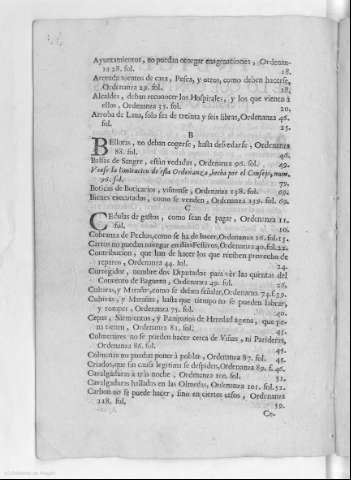 Ayuntamientos, no puedan otorgar enagenaciones, Ordenan-
za 28. fol. 18.
Arrienda montes de caza, Pesca, y otros, como deben hacerse,
Ordenanza 29. fol. 18.
Alcaldes, deban reconocer los Hospitales, y los que vienen à
ellos, Ordenanza 35. fol. 20.
Arroba de Lana, solo sea de treinta y seis libras, Ordenanza 46.
fol. 25.
B
Bellotas, no deban cogerse, hasta desvedarse, Ordenanza
88. fol. 46.
Balsas de Sangre, estàn vedadas, Ordenanza 96. fol. 49.
Vease la limitacion de esta Ordenanza, hecha por el Consejo, num.
96. fol. 79.
Boticas de Boticarios, visitense, Ordenanza 138. fol. 69.
Bienes executados, como se venden, Ordenanza 139. fol. 69.
C
Cedulas de gastos, como sean de pagar, Ordenanza 11.
fol. 10.
Cobranza de Pechas, como se ha de hacer, Ordenanza 26. fol. 15.
Carros no puedan navegar en dias Festivos, Ordenanza 40. fol. 22.
Contribucion, que han de hacer los que reciben provecho de
reparos, Ordenanza 44. fol. 24.
Corregidor, nombre dos Diputados para vèr las quentas del
Convento de Baguena, Ordenanza 49. fol. 26.
Cubiaras, y Marador, como se deban señalar, Ordenanza 74. f. 39.
Cubiaras, y Marañas, hasta que tiempo no se pueden labrar,
y romper, Ordenanza 75. fol. 40.
Cepas, Sarmientos, y Panijuelos de Heredad agena, que pe-
na tienen, Ordenanza 81. fol. 43.
Colmenares no se pueden hacer cerca de Viñas, ni Parideras,
Ordenanza 86. fol. 45.
Colmenas no puedan poner à poblo, Ordenanza 87. fol. 45.
Criados, que sin causa legitima se despiden, Ordenanza 89. f. 46.
Cavalgaduras à tras noche, Ordenanza 100. fol. 51.
Cavalgaduras halladas en las Olmedas, Ordenanza 101. fol. 52.
Carbon no se puede hacer, sino en ciertos casos, Ordenanza
118. fol. 59.
Ce-